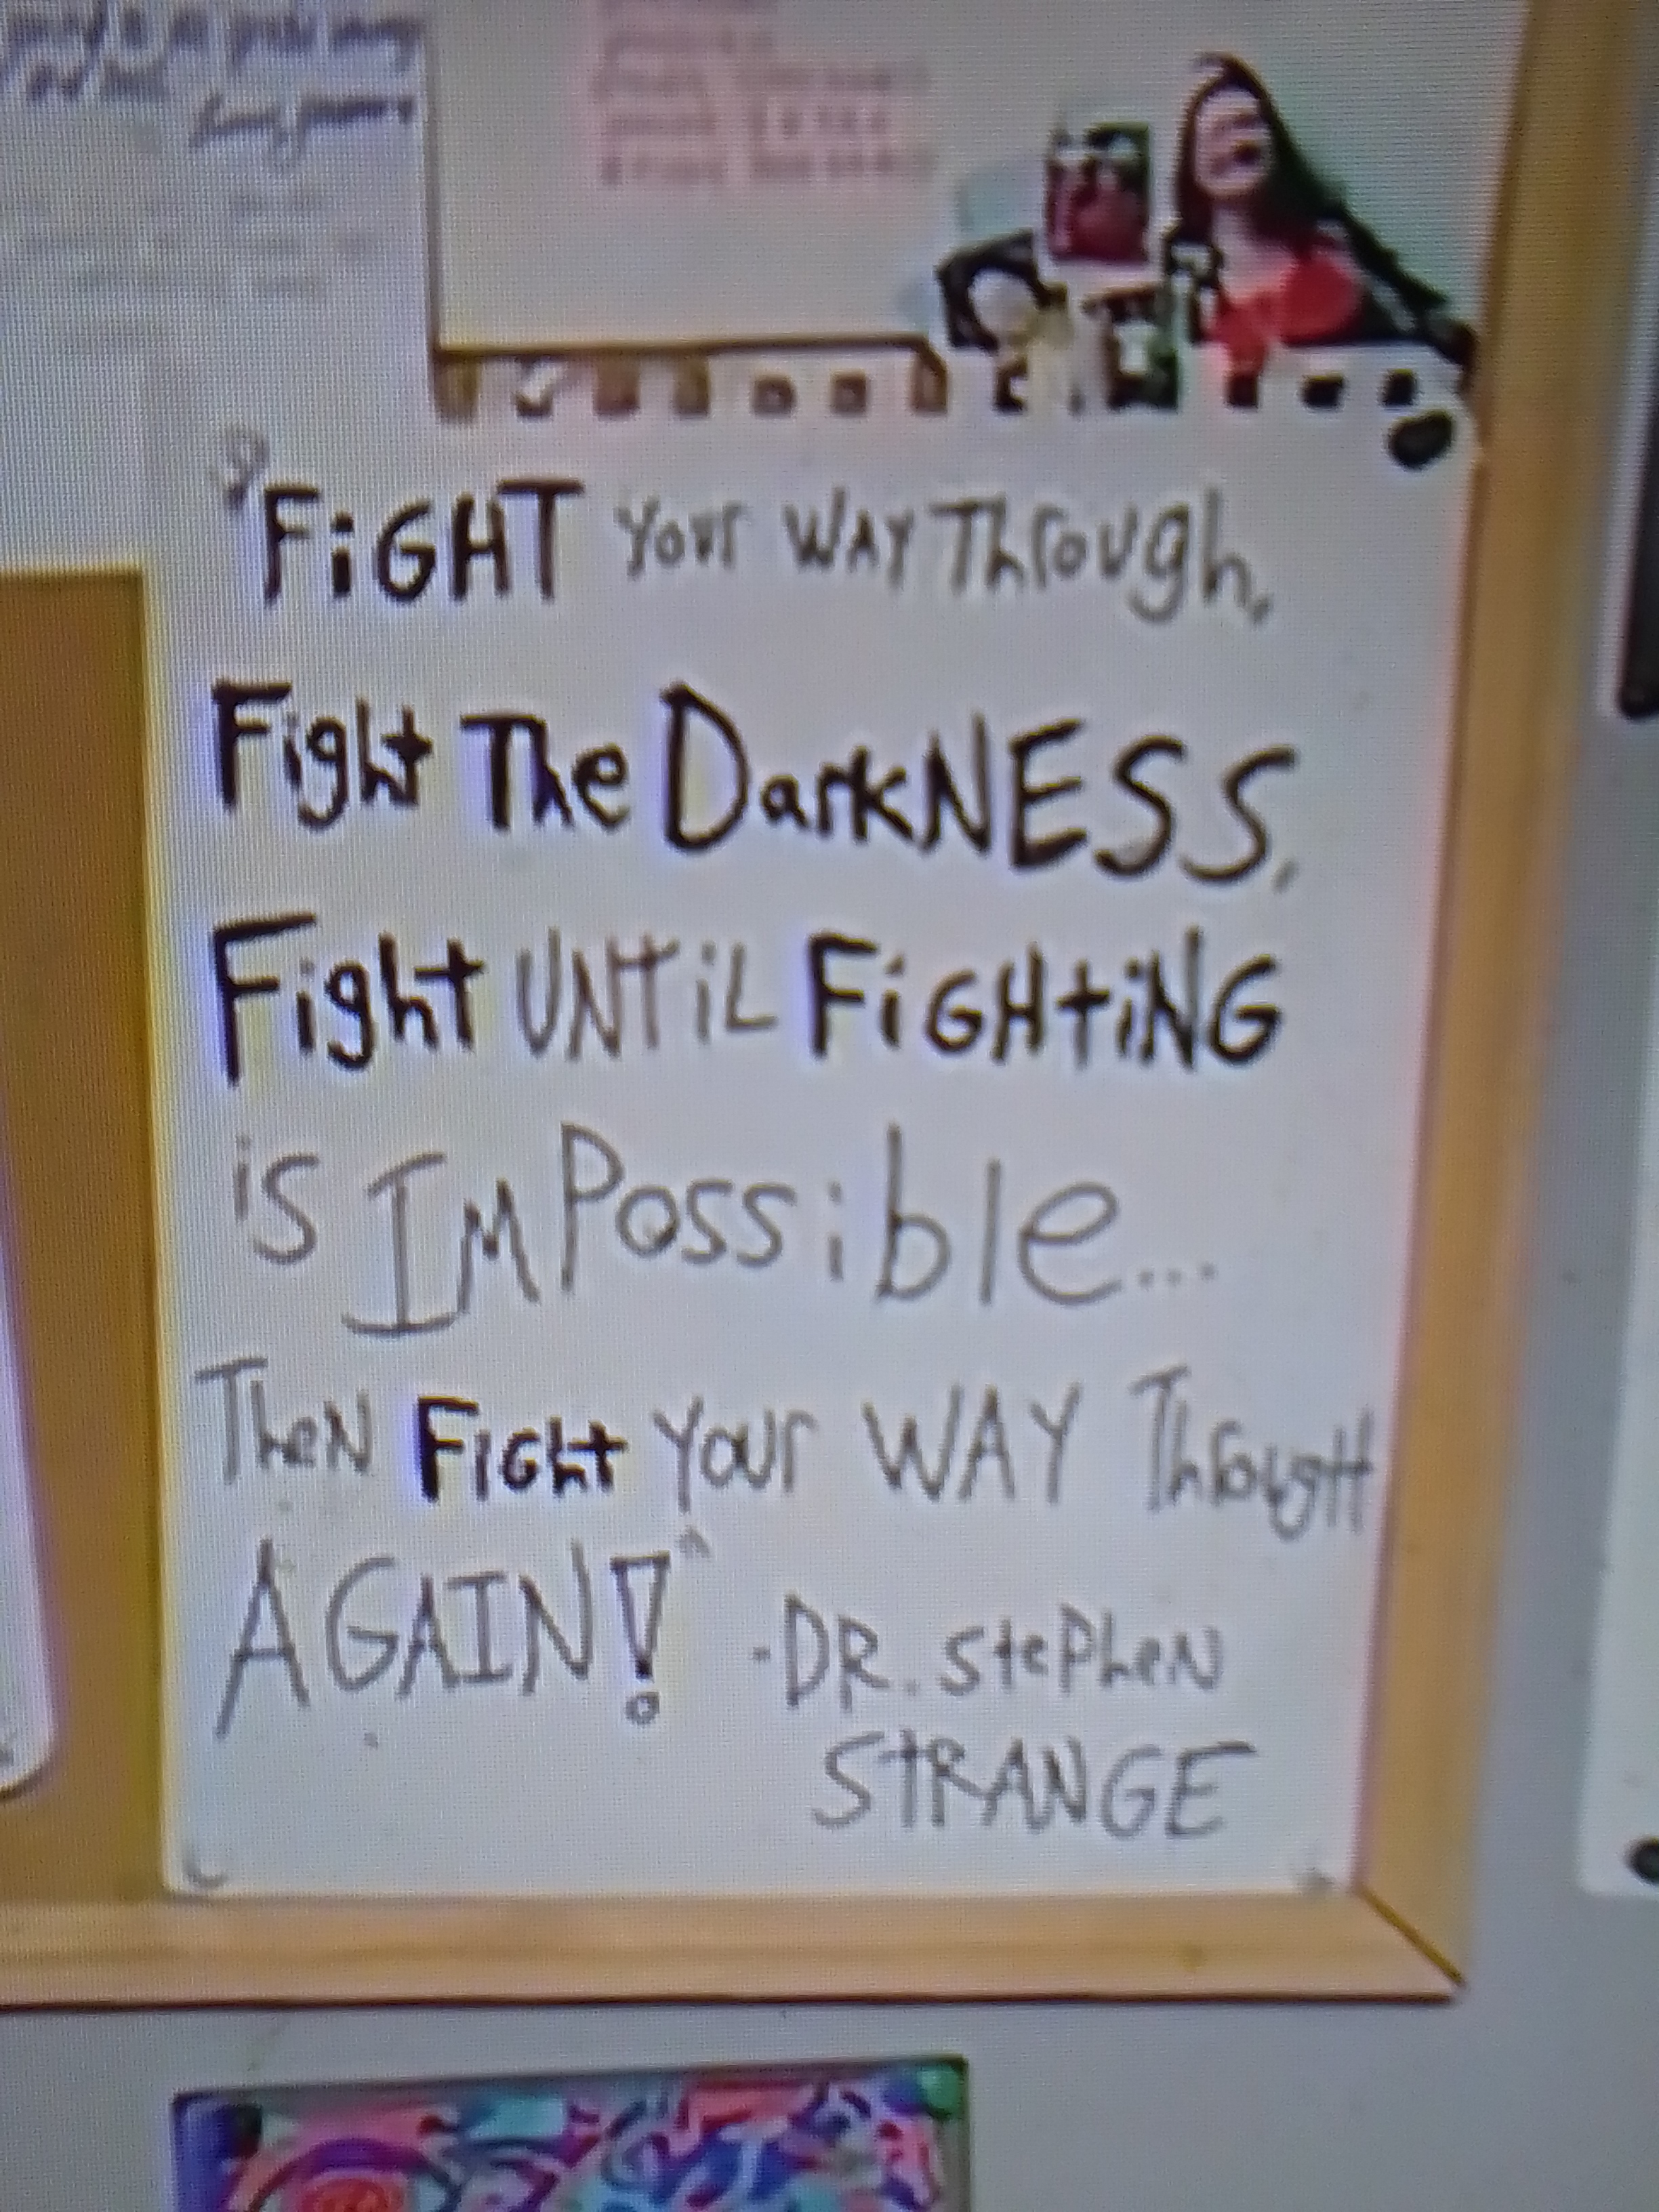 "FiGHT Your WAY Through,
Fight The DarkNESS,
Fight UNTiL FiGHtiNG
is IMPossible...
TheN FIGht Your WAY ThrougH
AGAIN!" -DR. StePheN
STRANGE